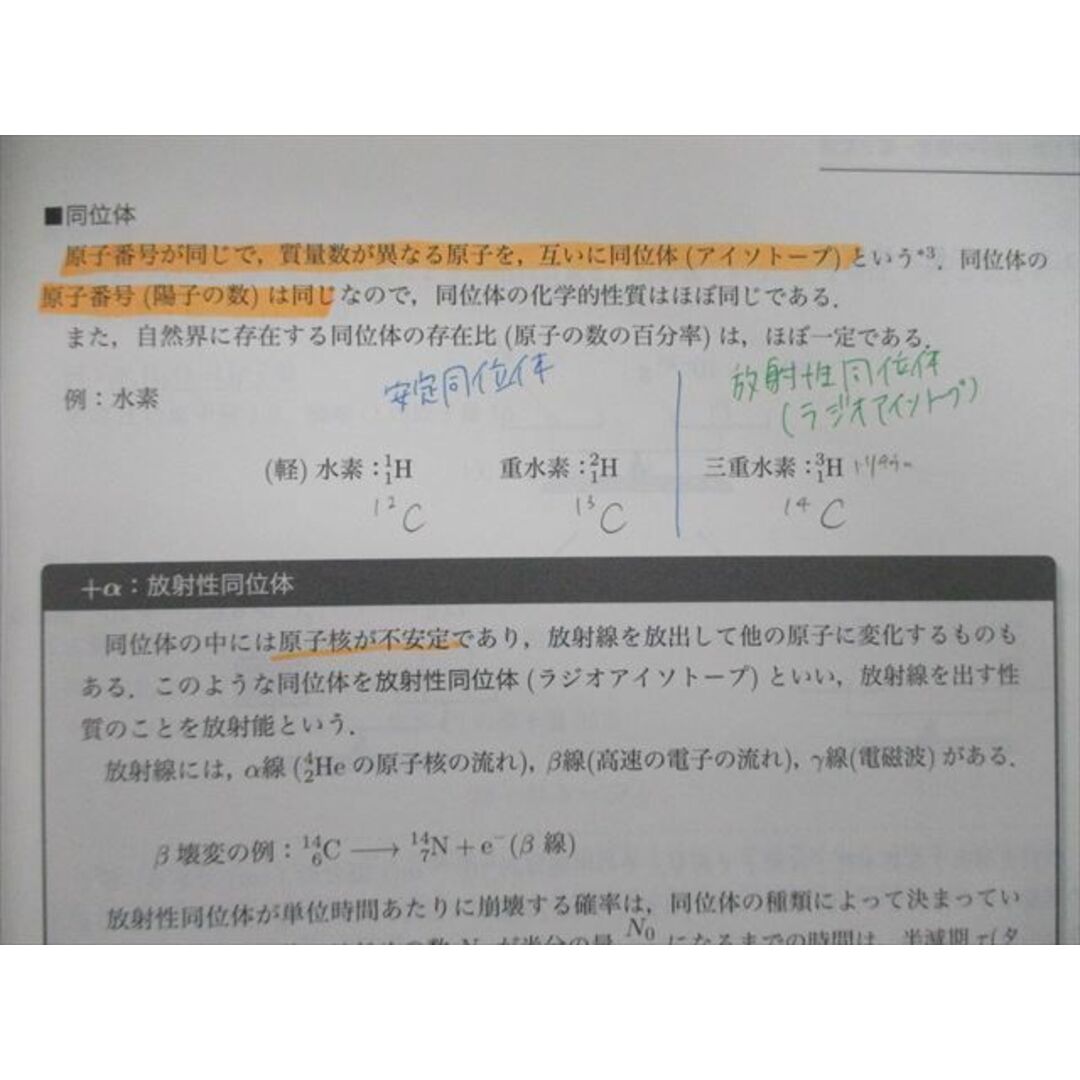 ■同位体
原子番号が同じで，質量数が異なる原子を，互いに同位体 (アイソトープ) という*3．同位体の
原子番号 (陽子の数) は同じなので，同位体の化学的性質はほぼ同じである．
また，自然界に存在する同位体の存在比 (原子の数の百分率) は，ほぼ一定である．
安定同位体
放射性同位体
(ラジオアイソトープ)
例：水素
(軽) 水素：¹₁H 重水素：²₁H 三重水素：³₁H
¹²C ¹³C ¹⁴C
+α：放射性同位体
同位体の中には原子核が不安定であり，放射線を放出して他の原子に変化するものも
ある．このような同位体を放射性同位体 (ラジオアイソトープ) といい，放射線を出す性
質のことを放射能という．
放射線には, α線 (⁴₂He の原子核の流れ), β線(高速の電子の流れ), γ線(電磁波) がある．
β 壊変の例：¹⁴₆C ⟶ ¹⁴₇N + e⁻ (β 線)
放射性同位体が単位時間あたりに崩壊する確率は，同位体の種類によって決まってい
の数 N₀ が半分の量 N₀ になるまでの時間は，半減期 τ(タ